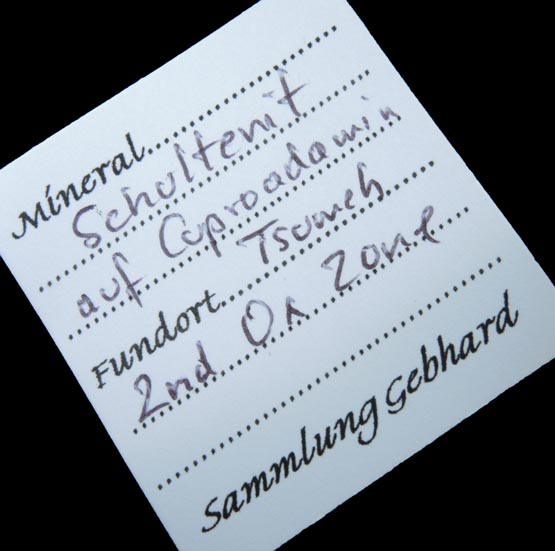 Mineral
Schultenit
auf Cuproadamin
Fundort Tsumeb
2nd Ox Zone
Sammlung Gebhard